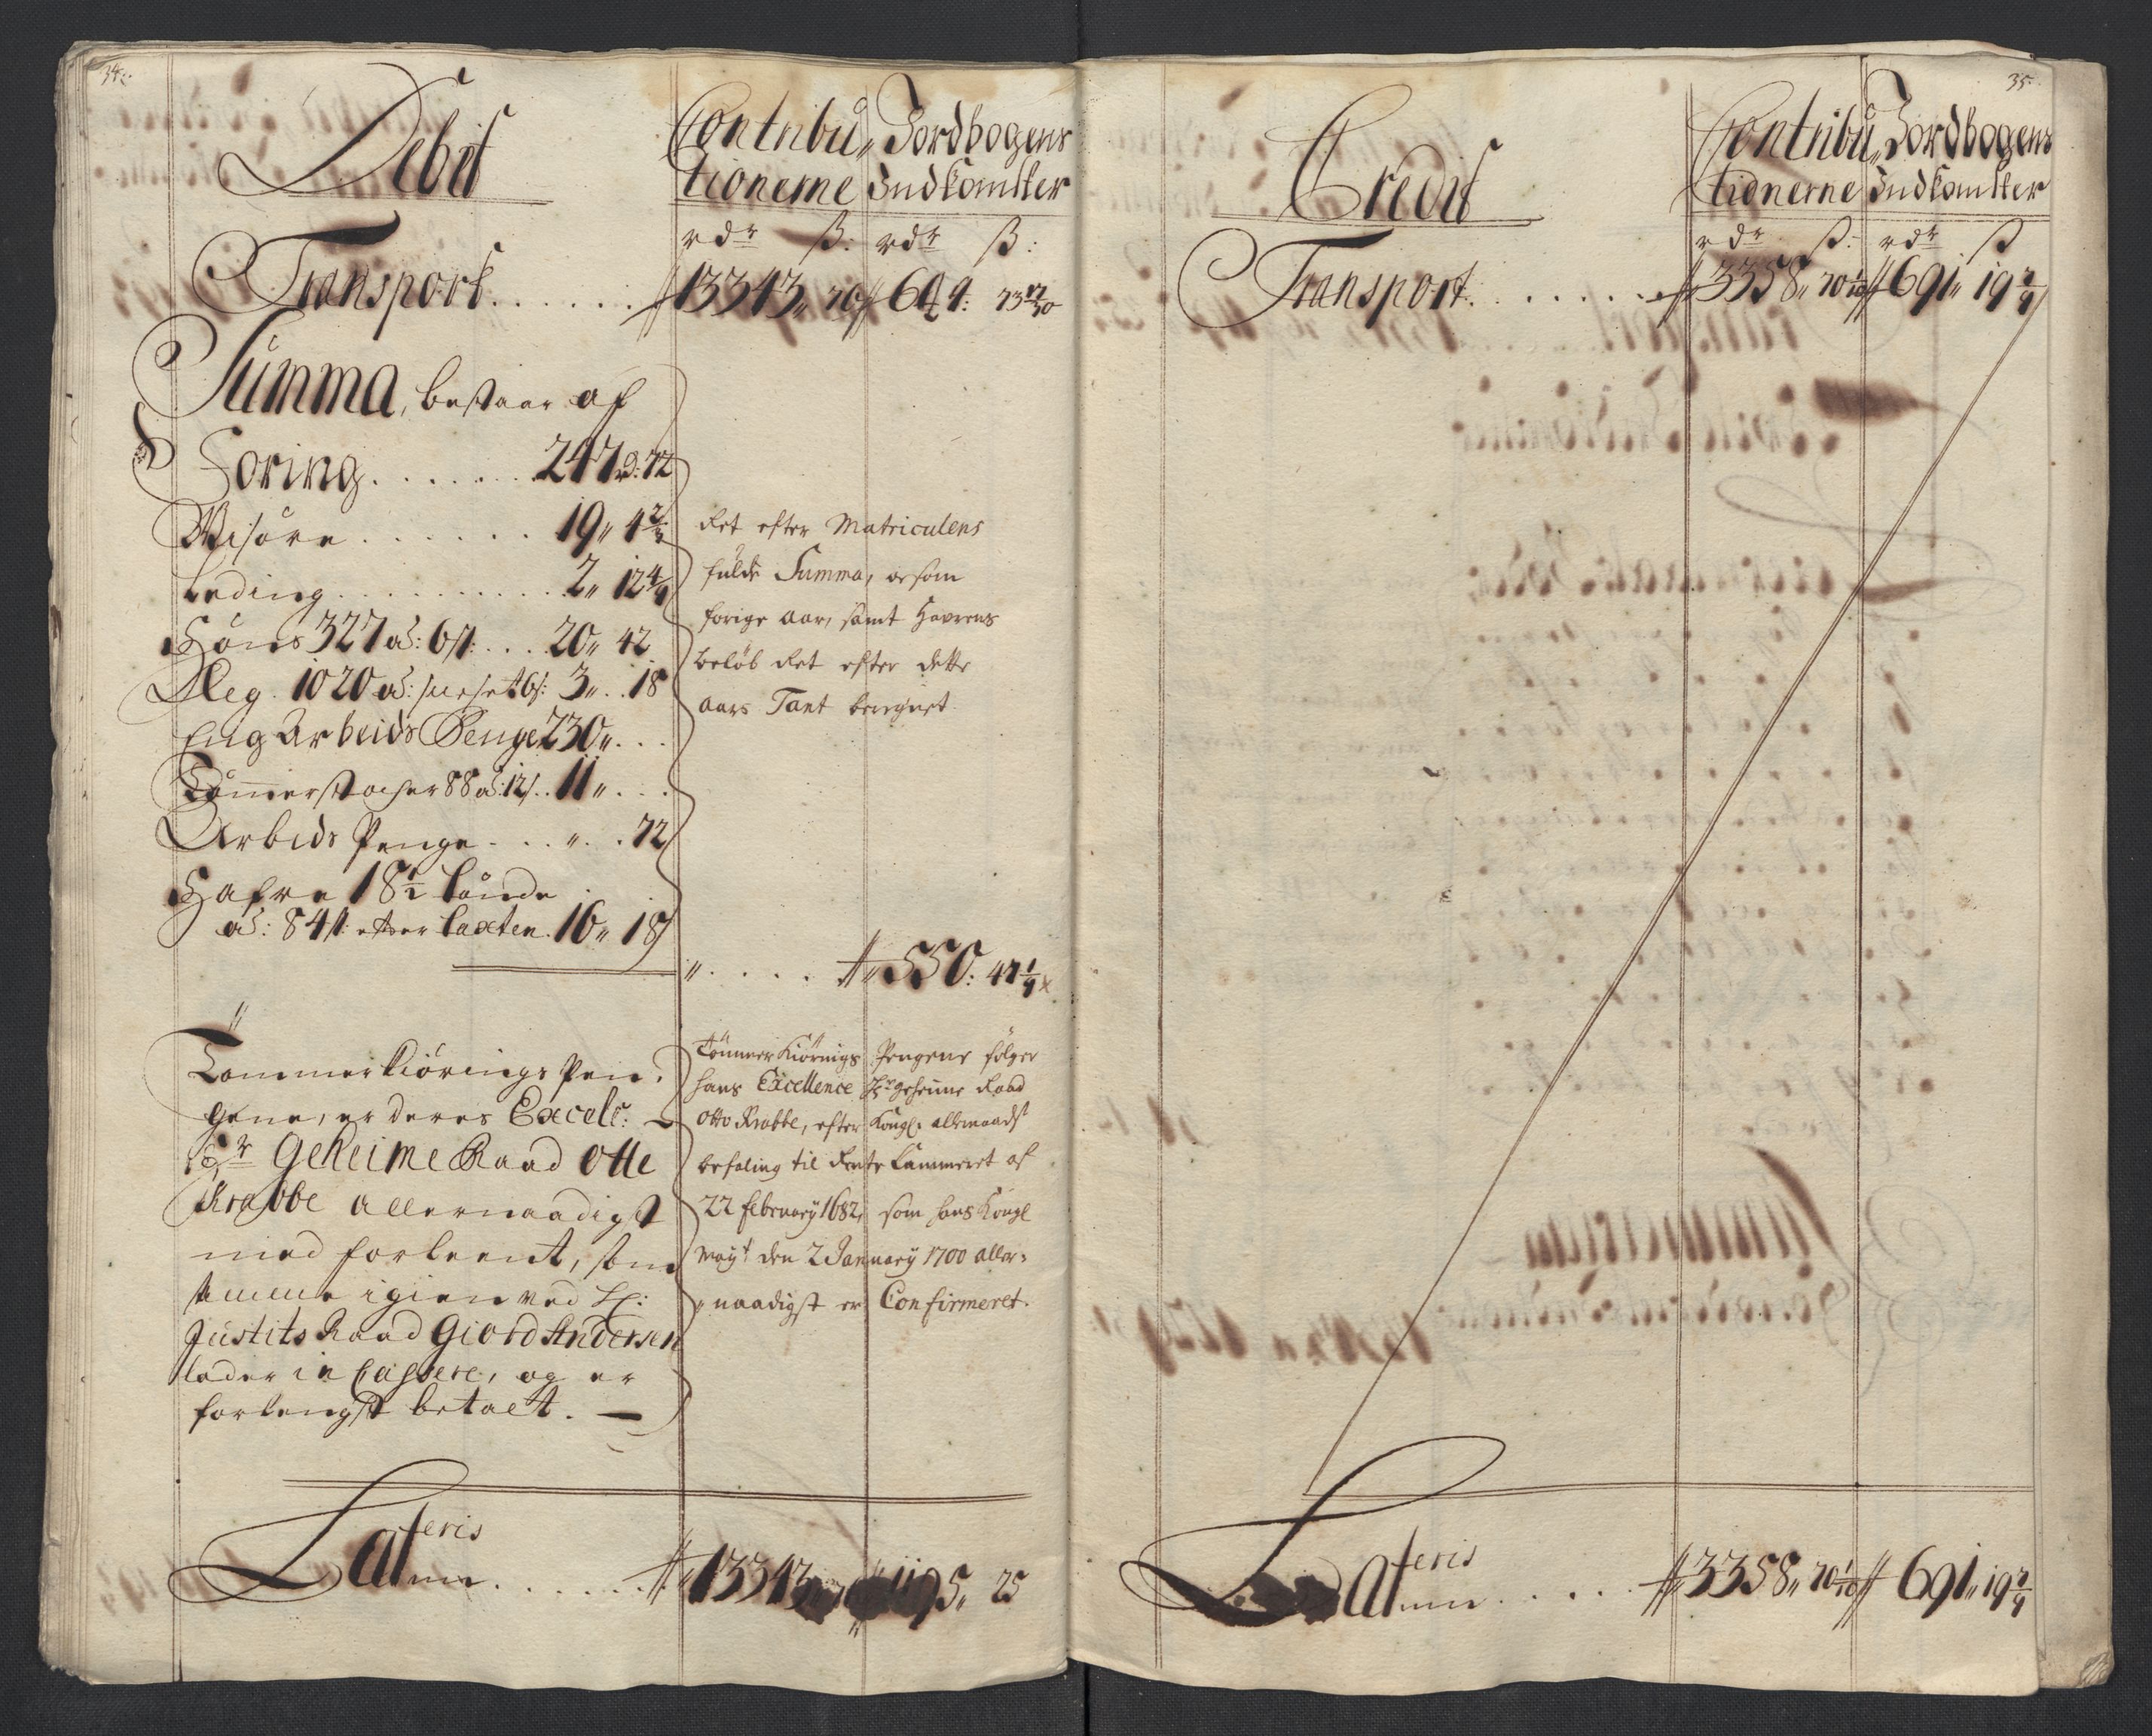 34.
Debit
Contribu„
tionerne
Jordbogens
Indkomster
rdr ß: rdr ß:
Transport . . . . . . 13343„ 70 644: 73 17/30
Summa, bestaar af
Foring . . . . . . . 247 rd: 72
Wisøre . . . . . . 19„ 4 2/3
Leding . . . . . . . . . . 2„ 12 4/9
Høns 327 ad: 6 ß: . . . 20„ 42
Æg. 1020 ad: snese t 6 ß: 3„ . . 18
Eng Arbeids Penge 230„ . . .
Tømmerstocher 88 ad: 12 ß . . 11„ . . .
Arbids Penge . . . „ . . 72
Hafre 18 1/2 tønde
ad: 84 ß: efter taxten. 16„ 18
Det efter Matriculens
fulde Summa, er som
forige aar, samt Havrens
beløb det efter dette
aars Taxt beregnet.
„ . . . . 550: 47 1/9
Tømmerkiørings Pen„
gene, er deres Excell:
Hr Geheime Raad Otte
Krabbe allernaadigst
med forleent, som
samme igien ved Hr:
Justits Raad Giord Andersen
lader in Cassere, og er
forlengst betalt.
Tømmer Kiørnigs Pengene følger
hans Excellence Hr geheime Raad
Otto Krabbe, efter Kongl: allernaadst
befaling til Rente Cammeret af
22 february 1682, som hans Kongl
Mayt den 2 January 1700 aller=
„naadigst er Confirmeret.
Lateris . . . . . . . 13343„ 70 1195„ 25
35.
Credit
Contribu„
tionerne
Jordbogens
Indkomster
rdr ß: rdr ß
Transport . . . . . . . 3358„ 70 1/10 691„ 19 7/9
Lateris . . . . 3358„ 70 1/10 691„ 19 7/9